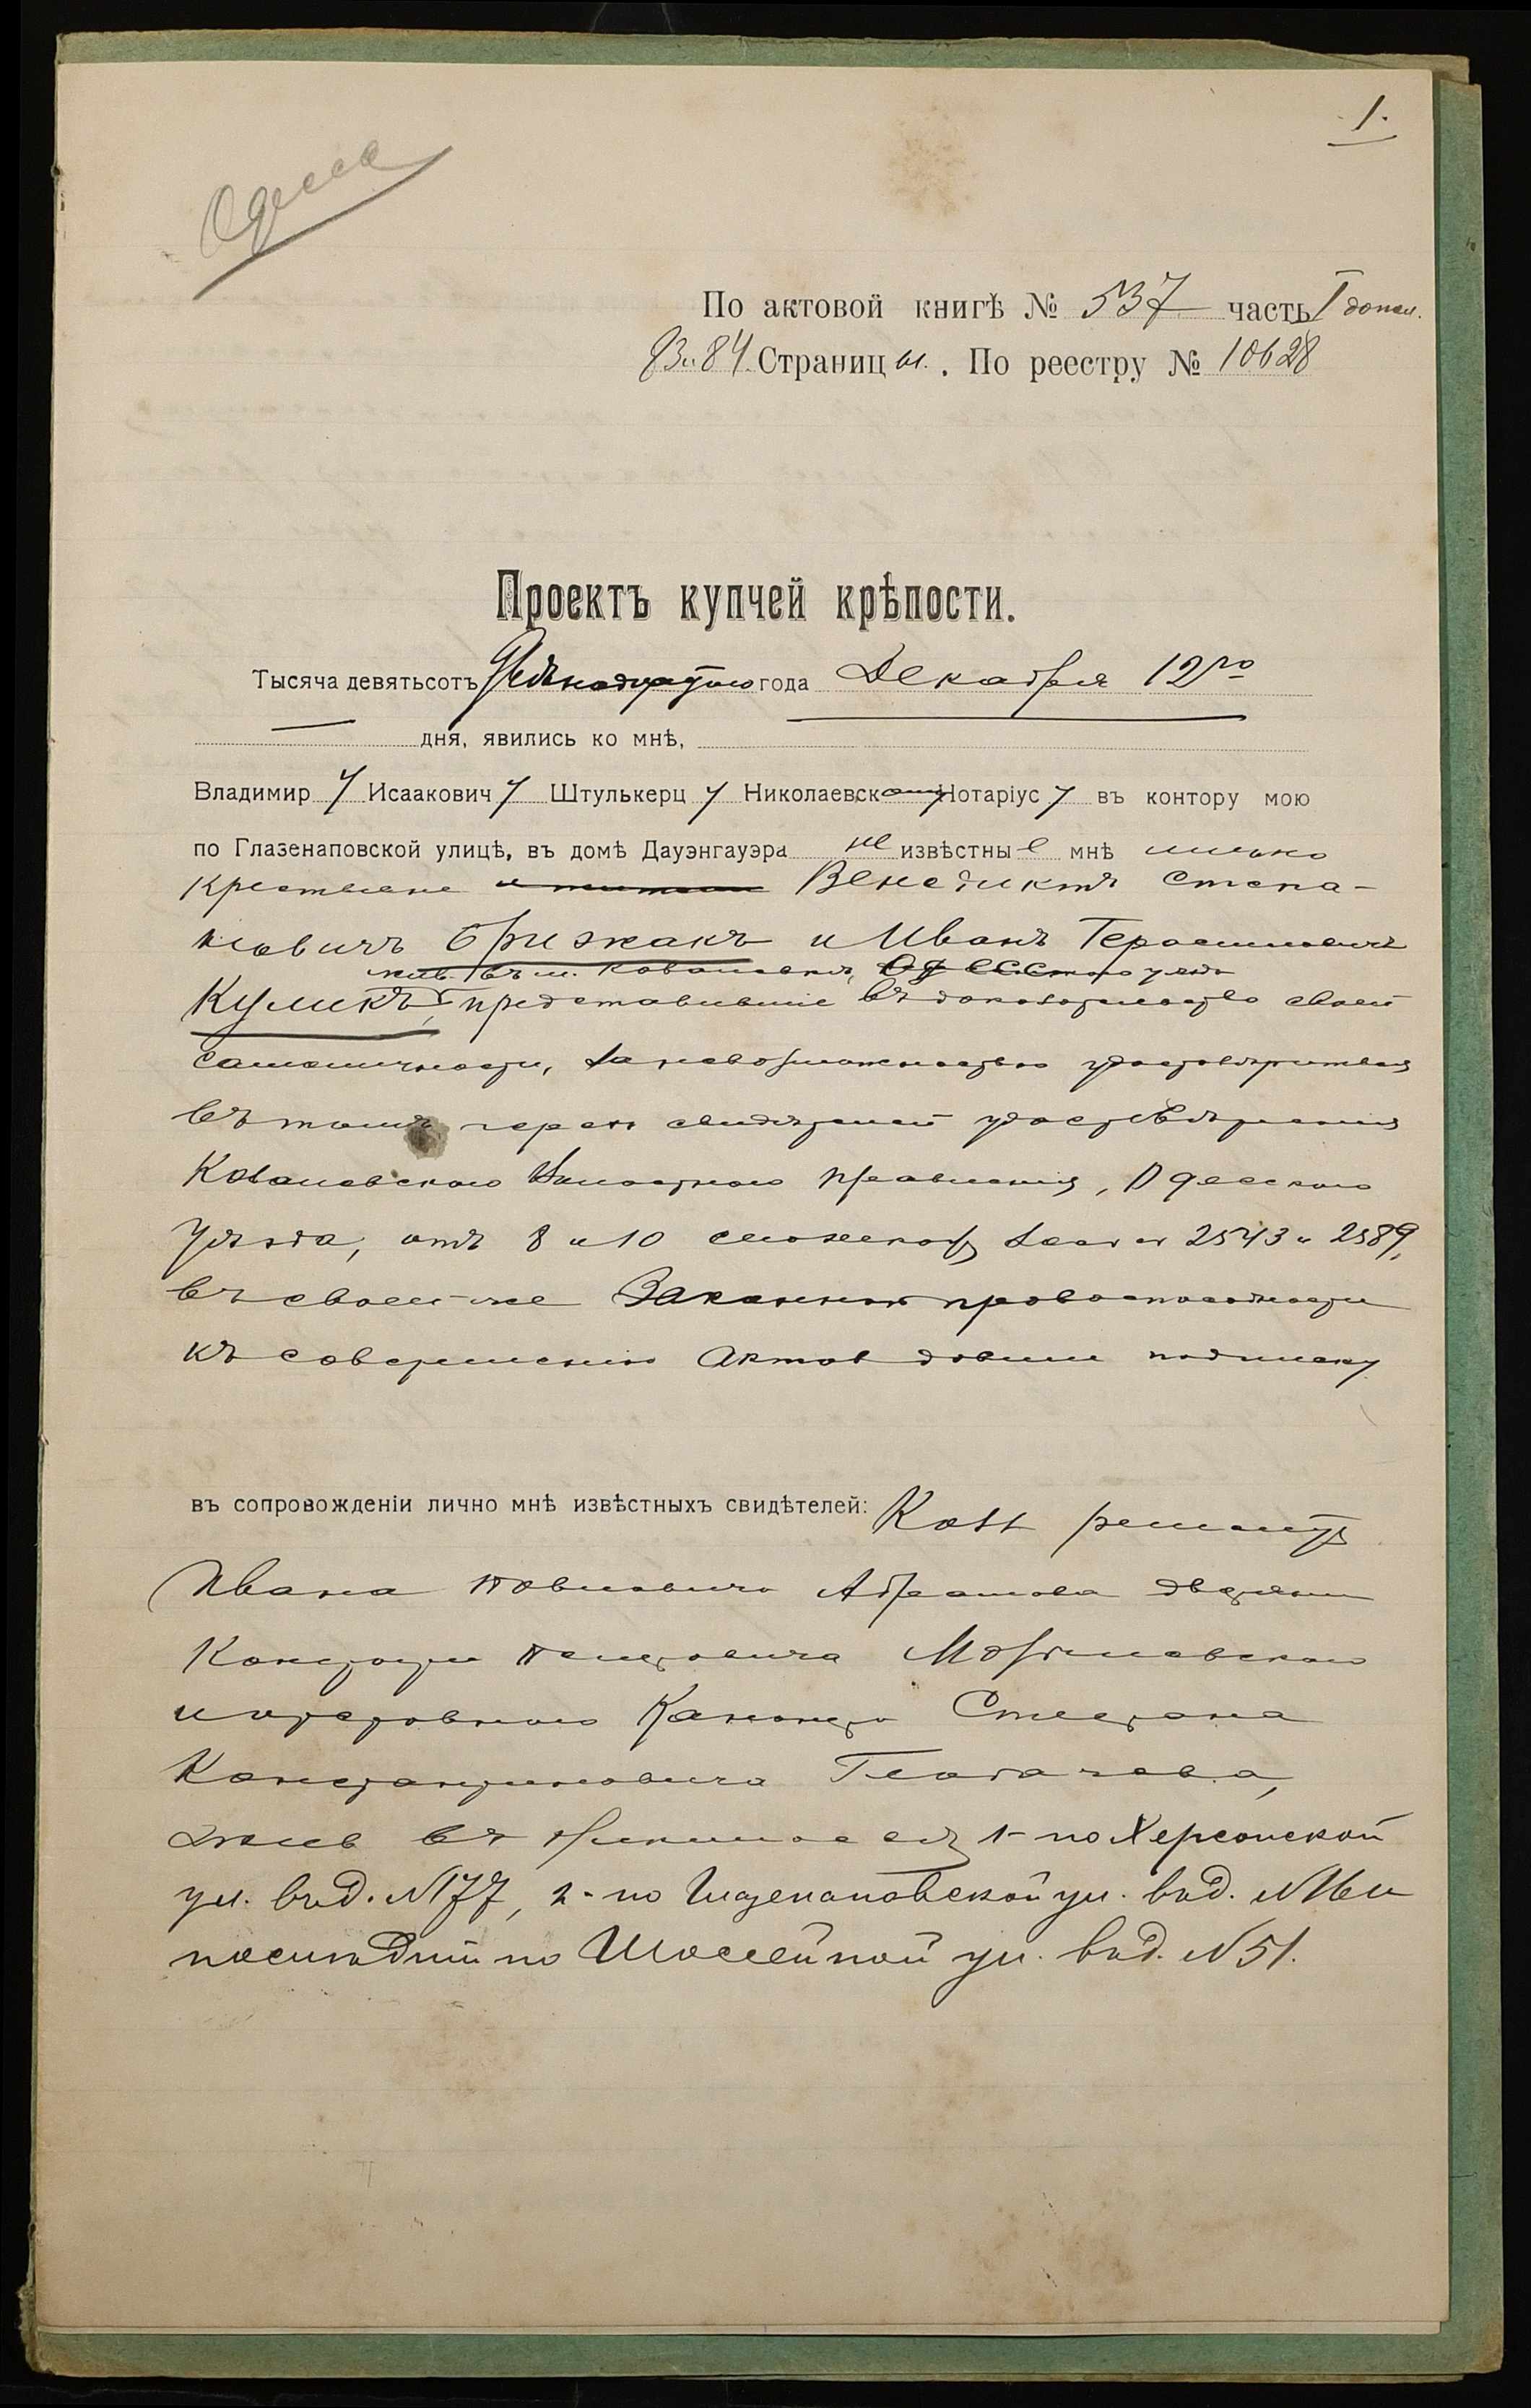 1.
Одесса
По актовой книгѣ № 537 часть I допол.
83 и 84 Страницы. По реестру № 10628
Проектъ купчей крѣпости.
Тысяча девятьсотъ года Декабря 12го
дня, явились ко мнѣ,
Владимиру Исааковичу Штулькерцу Николаевскому Нотаріусу въ контору мою
по Глазенаповской улицѣ, въ домѣ Дауэнгауэра неизвѣстные мнѣ лично
крестьяне Венедиктъ Степа-
новичъ Брижакъ и Иванъ Герасимовичъ
жив. въ м. Ковалевкѣ, Одесскаго уѣзда
Куликъ, представившіе въ доказательство своей
самоличности, за невозможностью удостовѣриться
въ томъ черезъ свидѣтелей удостовѣренія
Ковалевскаго Волостного Правленія, Одесскаго
уѣзда, отъ 8 и 10 сего декабря за № 2543 и 2589,
въ своей же законной правоспособности
къ совершенію актовъ давши подписку
въ сопровожденіи лично мнѣ извѣстныхъ свидѣтелей:
Ивана Павловича Абрамова дворянина
Петровича
и отставного Степана
Константиновича
жив. въ 1-по Херсонской
ул. въ д. №77, 2-по Глазенаповской ул. въ д. №16 и
послѣдній по Шоссейной ул. въ д. №51.